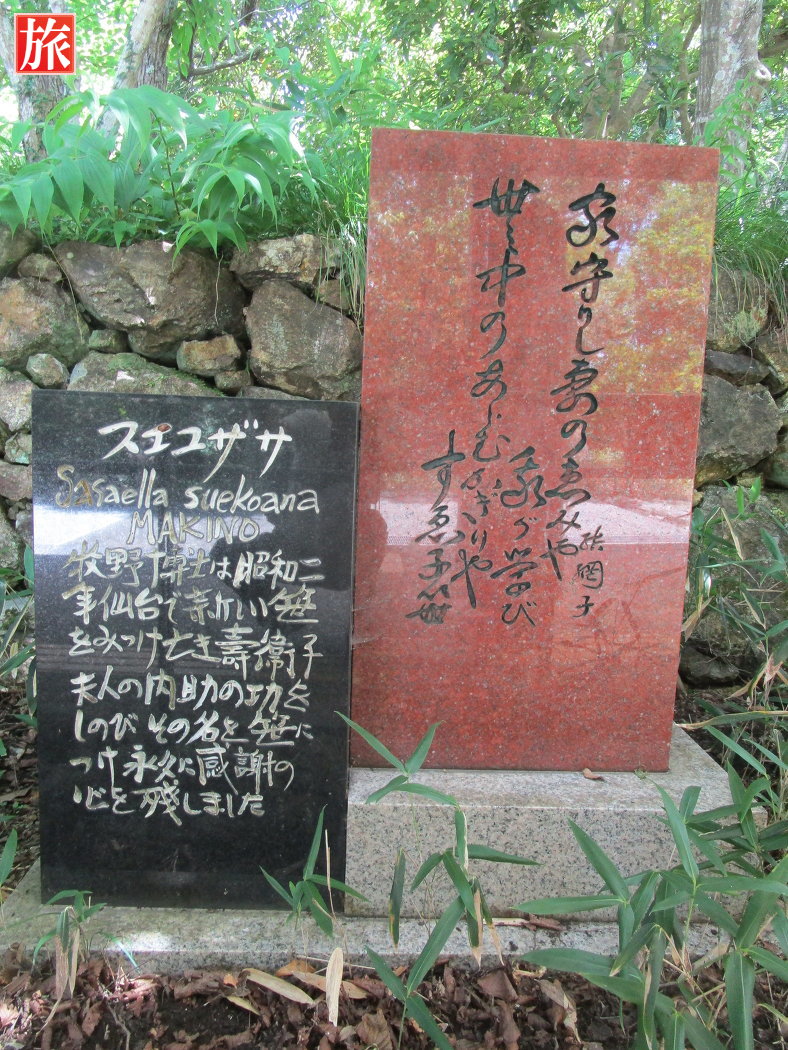 旅
スエコザサ
Sasaella suekoana
MAKINO
牧野博士は昭和二
年仙台で新しい笹
をみつけ亡き壽衛子
夫人の内助の功を
しのびその名を笹に
つけ永久に感謝の
心を残しました
家守りし妻の恵みや
我が学び
結網子
世の中のあらむかぎりや
すゑ子笹